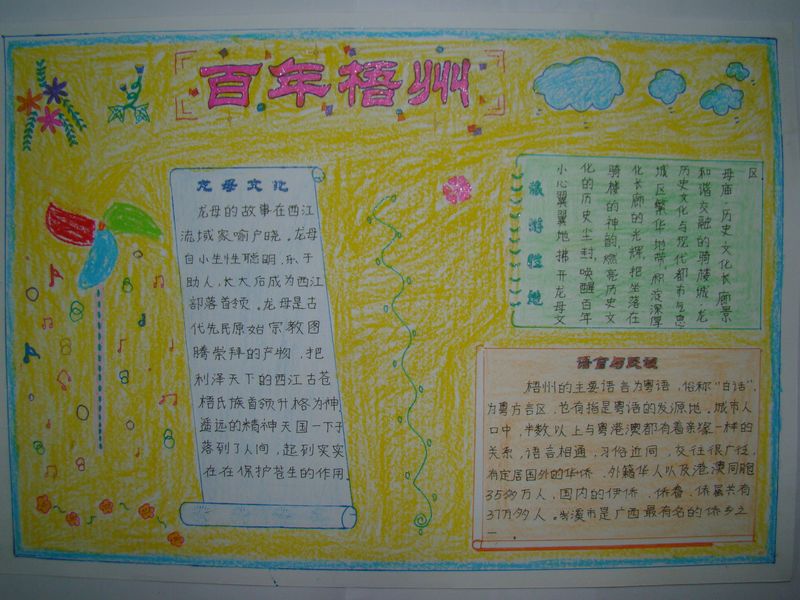 百年梧州
龙母文化
龙母的故事在西江
流域家喻户晓。龙母
自小生性聪明,乐于
助人,长大后成为西江
部落首领。龙母是古
代先民原始宗教图
腾崇拜的产物,把
利泽天下的西江古苍
梧氏族首领升格为神,
遥远的精神天国一下子
落到了人间,起到实实
在在保护苍生的作用。
旅游胜地
小心翼翼地拂开龙母文
化的历史尘封,唤醒百年
骑楼的神韵,燃亮历史文
化长廊的光辉,把坐落在
城区繁华地带,积淀深厚
历史文化与现代都市气息
和谐交融的骑楼城、龙
母庙、历史文化长廊景
区
语言与民俗
梧州的主要语言为粤语,俗称“白话”,
为粤方言区,也有指是粤语的发源地。城市人
口中,半数以上与粤港澳都有着亲缘一样的
关系,语言相通,习俗近同,交往很广泛,
有定居国外的华侨、外籍华人以及港澳同胞
35多万人,国内的归侨、侨眷、侨属共有
37万多人。岑溪市是广西最有名的侨乡之
一